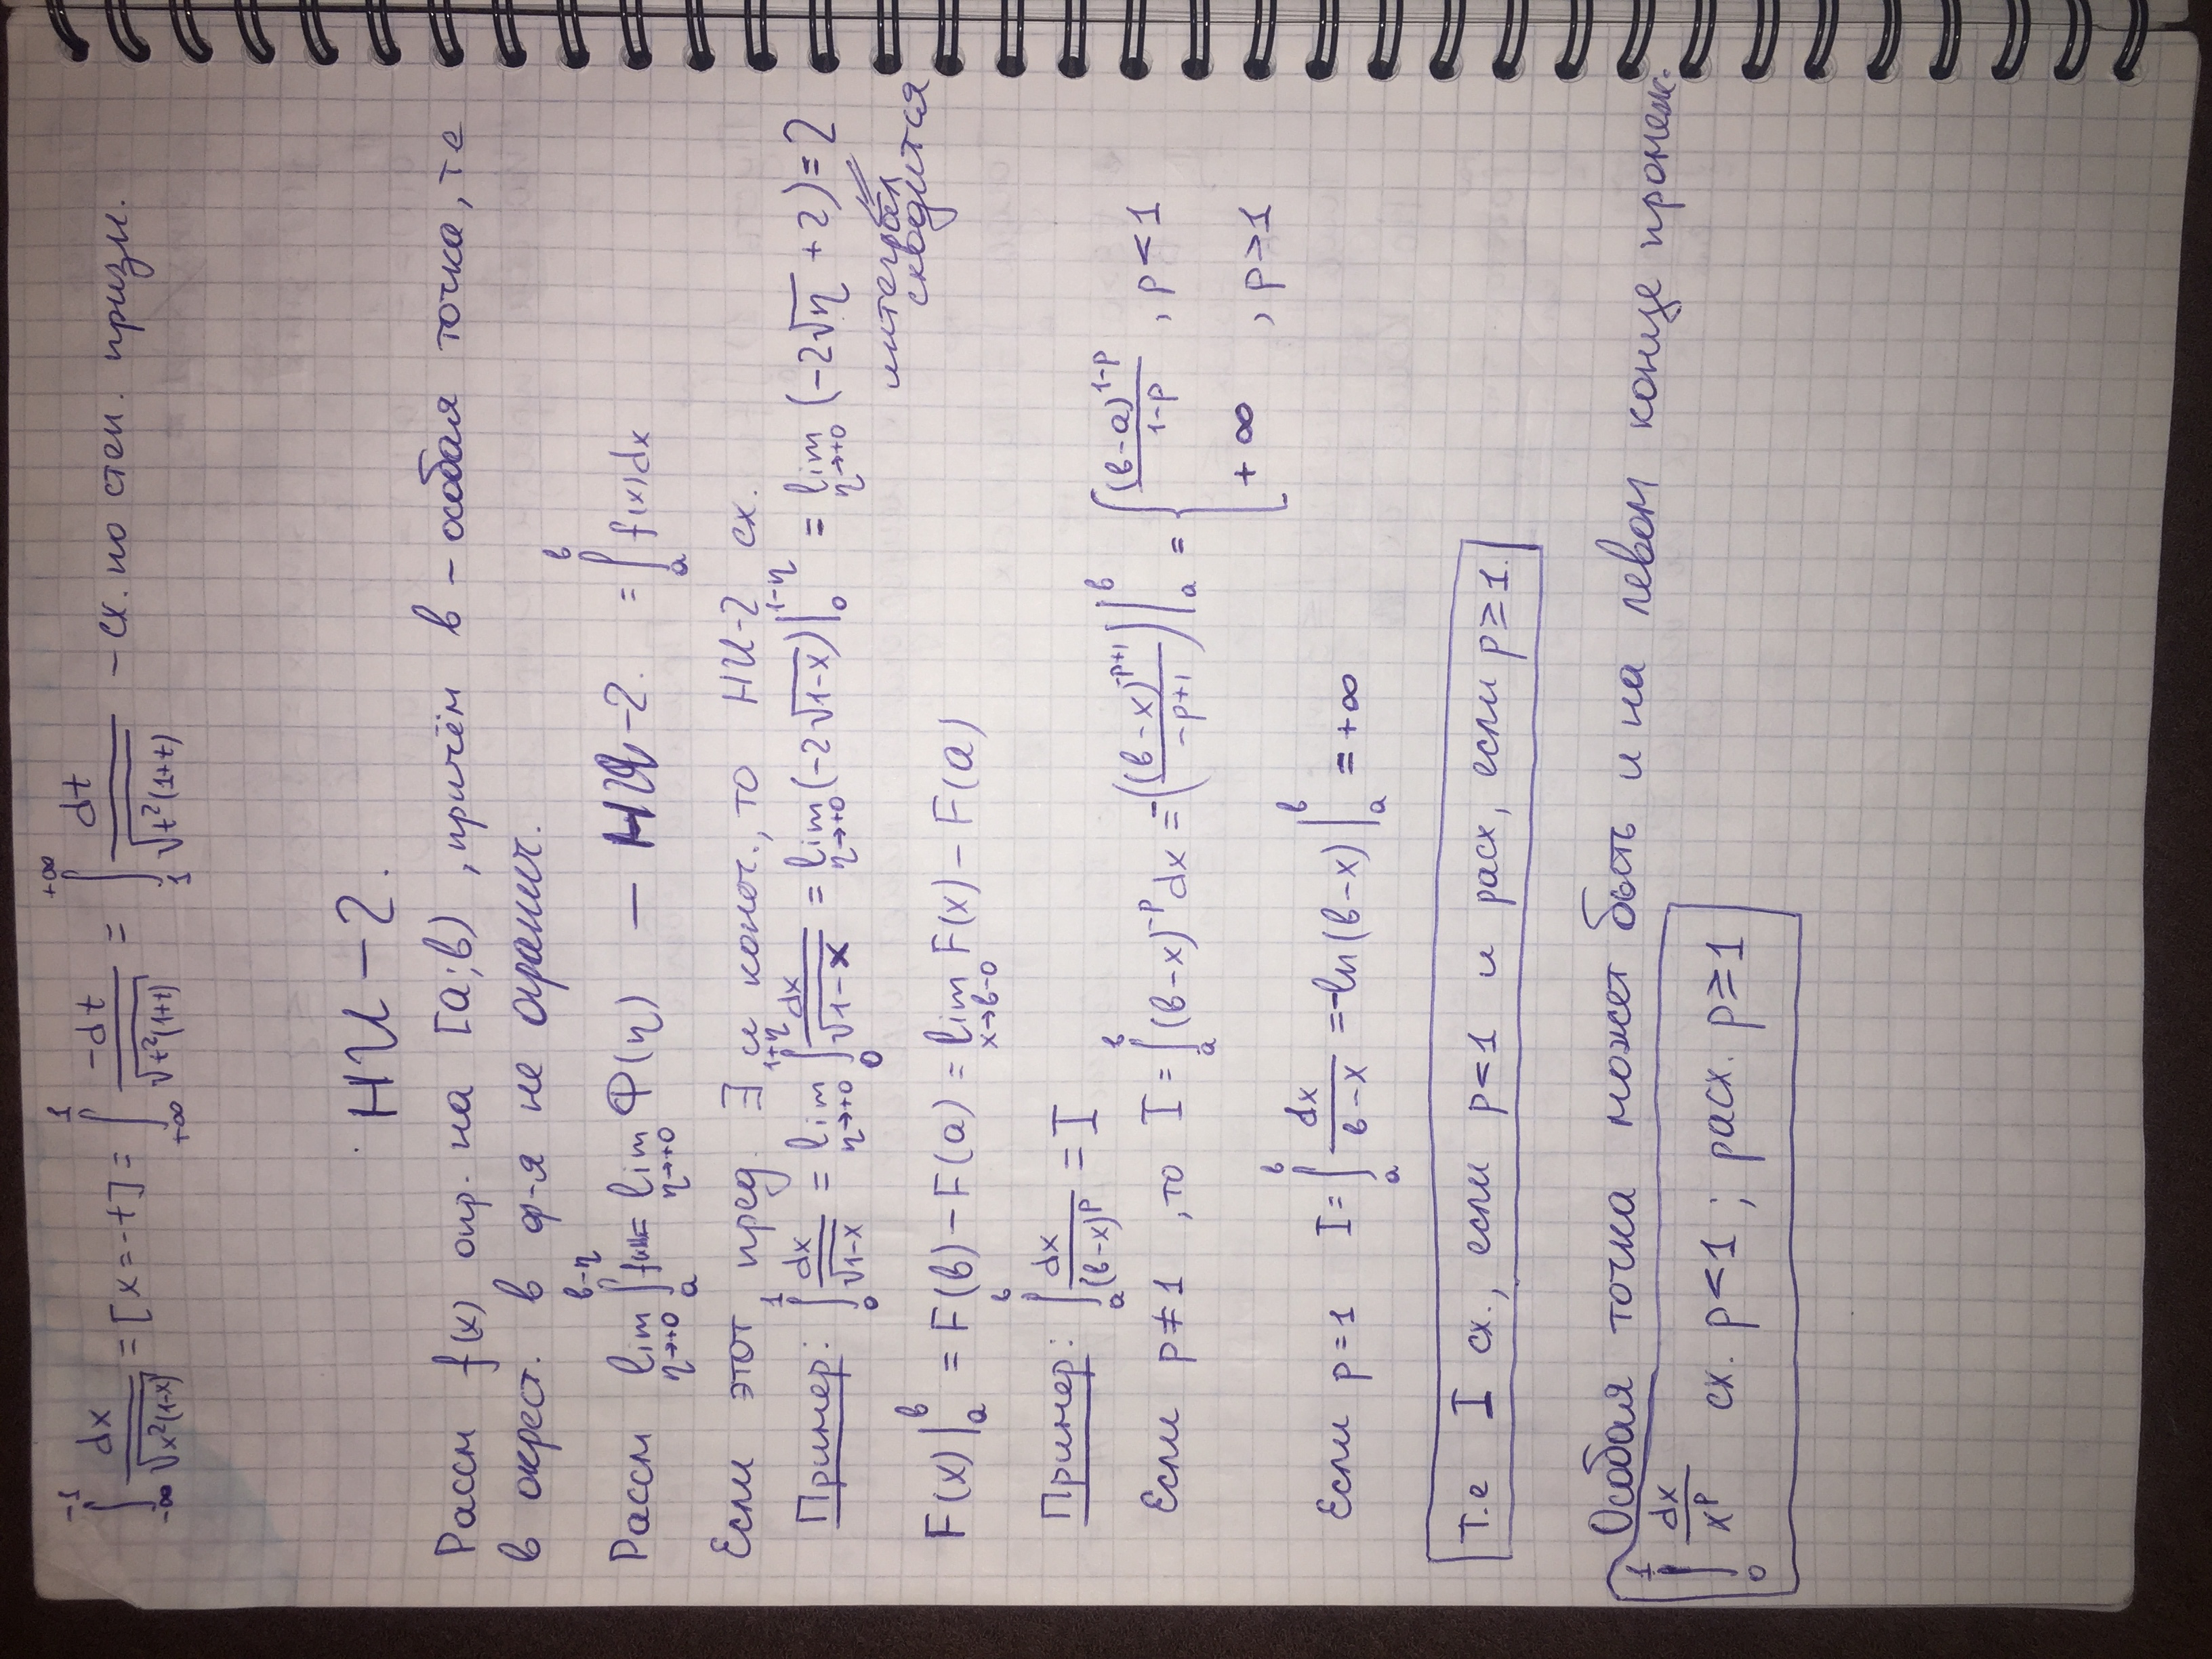 ∫_{-∞}^{-1} dx/√(x²(1-x)) = [x=-t] = ∫_{+∞}^{1} -dt/√(t²(1+t)) = ∫_{1}^{+∞} dt/√(t²(1+t)) – сх. по степ. призн.
НИ – 2.
Рассм f(x) опр. на [a;b), причём b – особая точка, те
в окрест. b ф-я не огранич.
Рассм lim_{η→+0} ∫_{a}^{b-η} f(x)dx = lim_{η→+0} Φ(η) — НИ-2. = ∫_{a}^{b} f(x)dx
Если этот пред. ∃ и конеч., то НИ-2 сх.
Пример: ∫_{0}^{1} dx/√(1-x) = lim_{η→+0} ∫_{0}^{1+η} dx/√(1-x) = lim_{η→+0} (-2√(1-x))|_{0}^{1-η} = lim_{η→+0} (-2√η + 2) = 2
интеграл
сходится
F(x)|_{a}^{b} = F(b) – F(a) = lim_{x→b-0} F(x) – F(a)
Пример: ∫_{a}^{b} dx/(b-x)^p = I
Если p≠1, то I = ∫_{a}^{b} (b-x)^{-p} dx = -((b-x)^{-p+1}/(-p+1))|_{a}^{b} = { (b-a)^{1-p}/(1-p), p<1
+∞, p>1
Если p=1 I = ∫_{a}^{b} dx/(b-x) = -ln(b-x)|_{a}^{b} = +∞
Т.е I сх., если p<1 и расх, если p≥1.
Особая точка может быть и на левом конце промеж.
∫_{0}^{1} dx/x^p сх. p<1; расх. p≥1